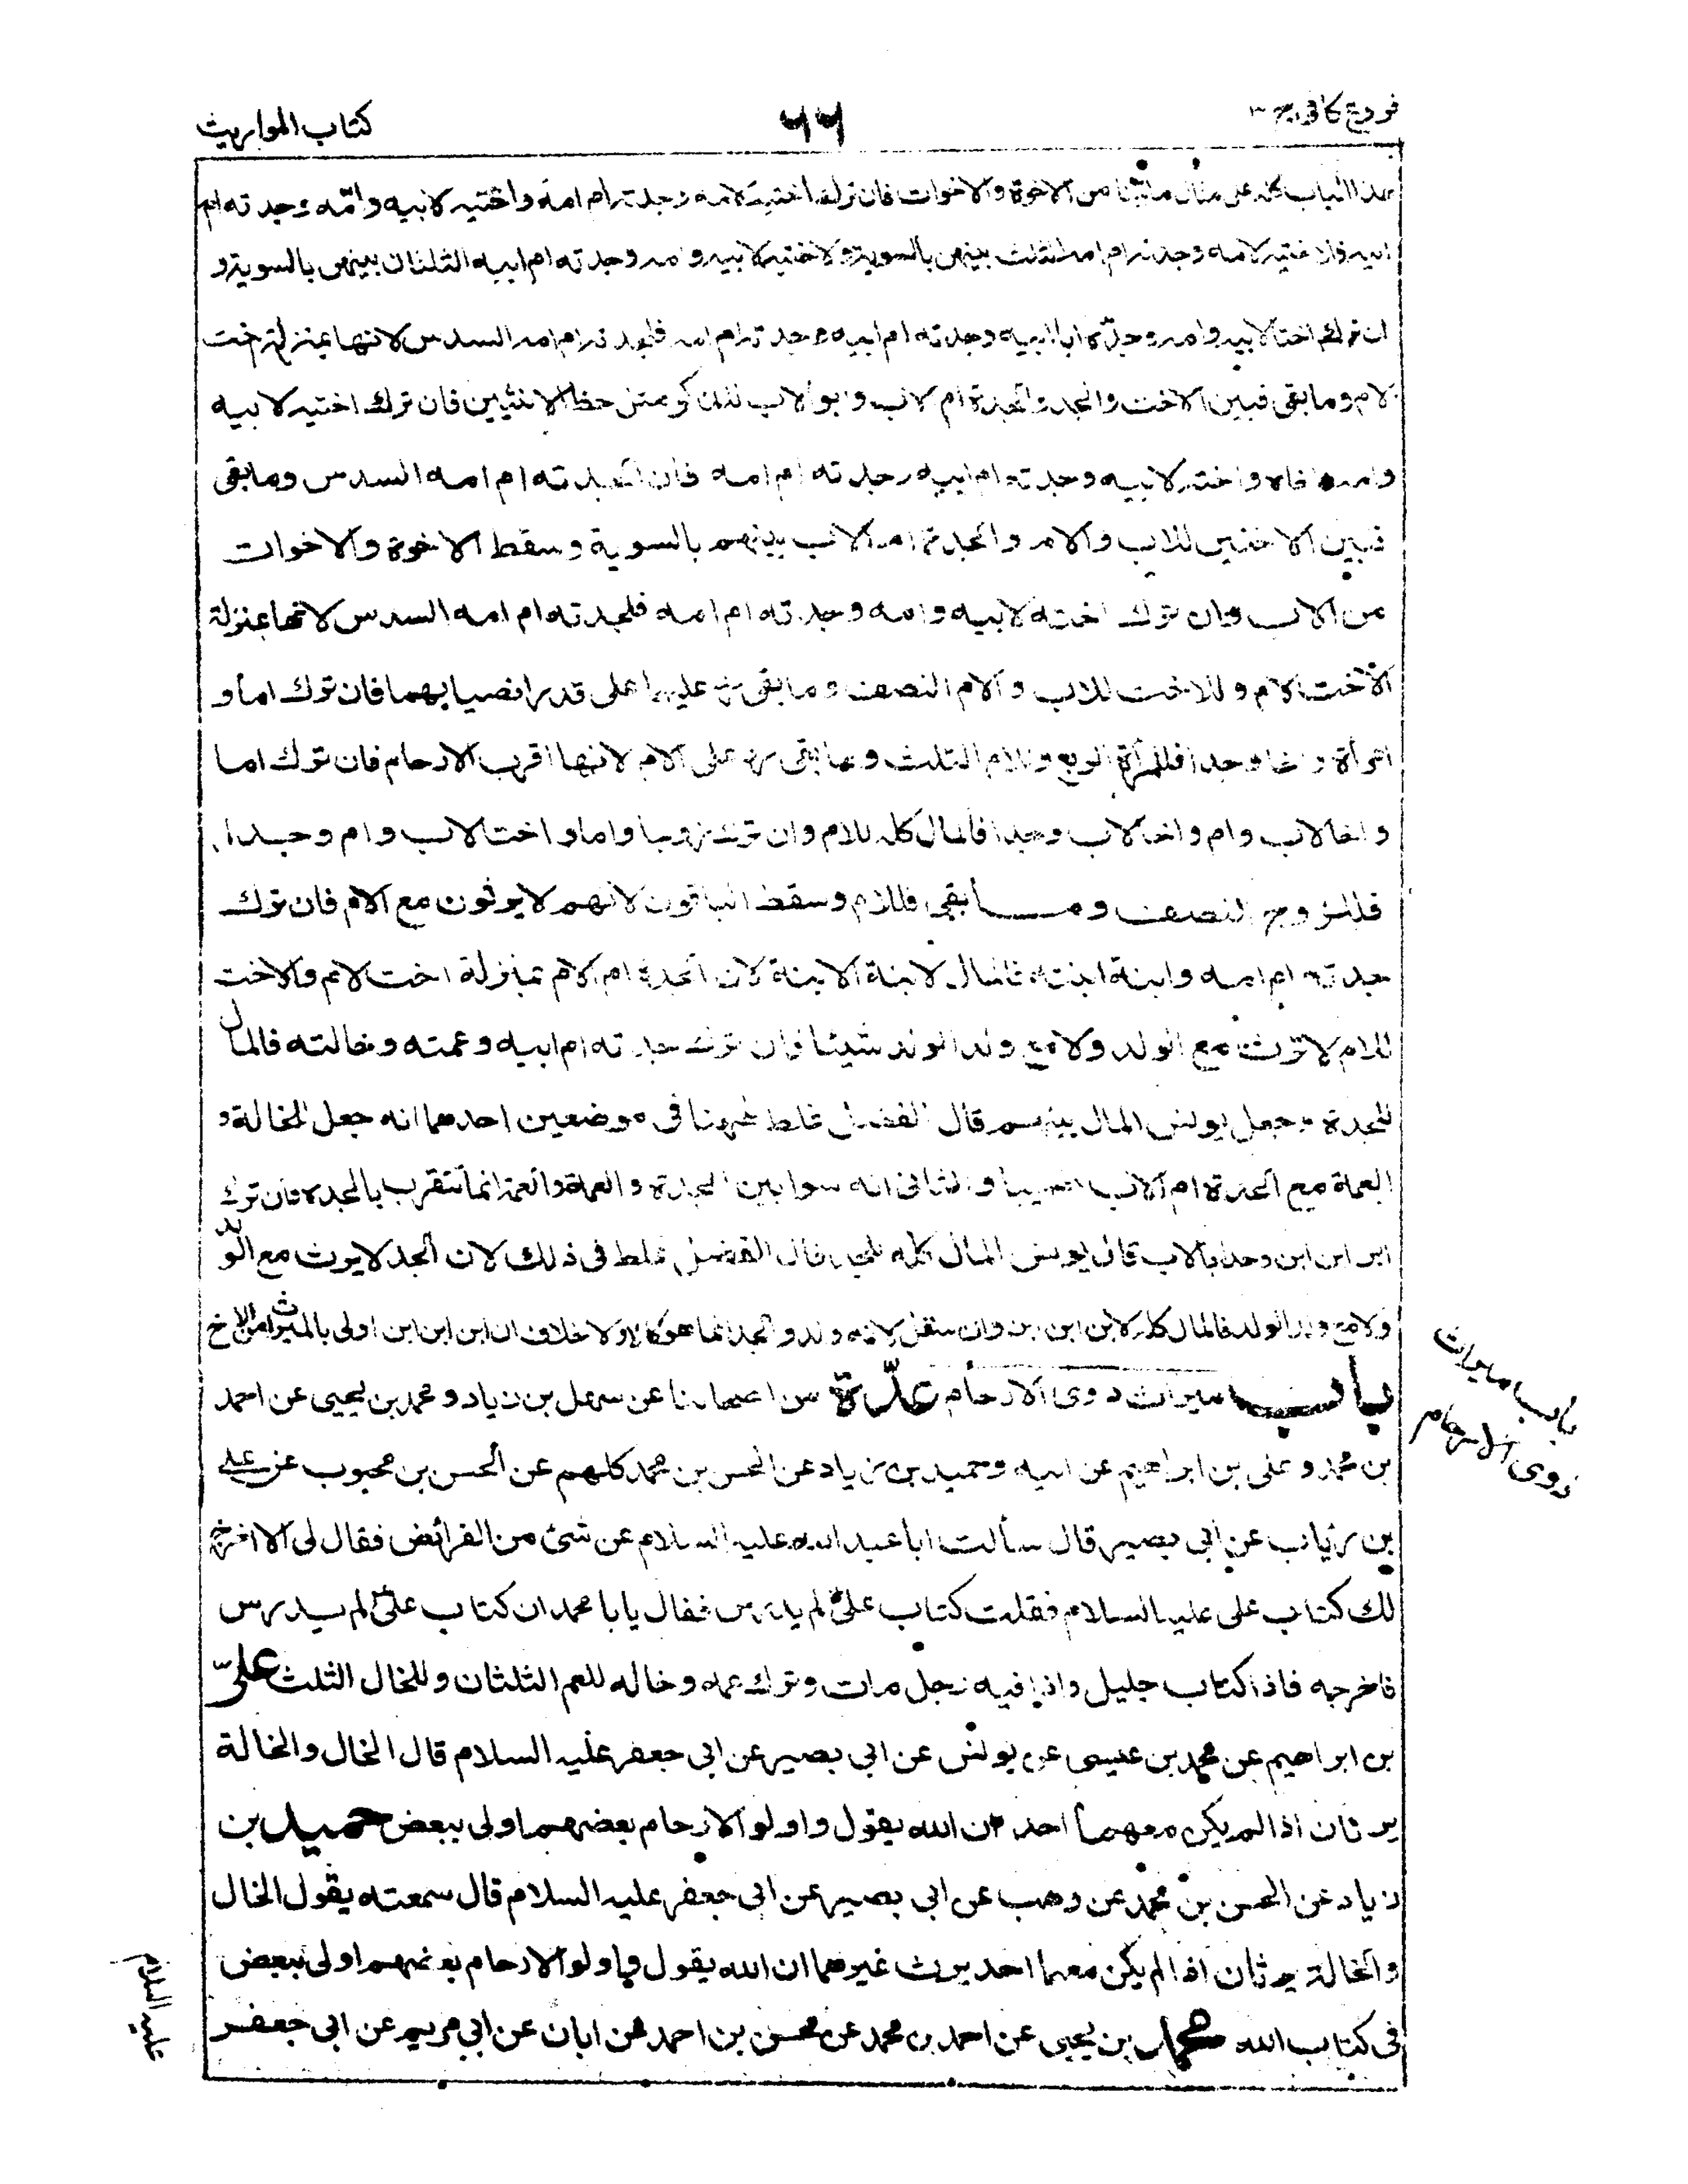 فروع كافى ج ٣
٦٦
كتاب المواريث
هذا الباب كله على مثال ما بينا من الاخوة والاخوات فان ترك اختيه لامه وجدته ام امه واختيه لابيه وامّه وجدته ام
ابيه فلاختيه لامه وجدته ام امه الثلث بينهن بالسوية ولاختيه لابيه وامه وجدته ام ابيه الثلثان بينهن بالسوية و
ان ترك اختا لابيه وامه وجدّه ابا ابيه وجدته ام ابيه وجدته ام امه فلجدته ام امه السدس لانها بمنزلة اخت
لام وما بقى فبين الاخت والجد والجدة ام الاب وابو الاب للذكر مثل حظ الانثيين فان ترك اختيه لابيه
وامه واخاه واخته لابيه وجدته ام ابيه وجدته ام امه فان لجدته ام امه السدس وما بقى
فبين الاختين للاب والام والجدة ام الاب بينهم بالسوية وسقط الاخوة والاخوات
من الاب وان ترك اخته لابيه وامه وجدته ام امه فلجدته ام امه السدس لانها بمنزلة
الاخت للام وللاخت للاب والام النصف وما بقى رد عليهما على قدر انصبايهما فان ترك اما و
امرأة واخا وجدا فللمرأة الربع وللام الثلث وما بقى رد على الام لانها اقرب الارحام فان ترك اما
واخا لاب وام واخا لاب وجدا فالمال كله للام وان ترك زوجا واما واختا لاب وام وجدا
فللزوج النصف وما بقى فللام وسقط الباقون لانهم لا يرثون مع الام فان ترك
جدته ام امه وابنة ابنته فالمال لابنة الابنة لان الجدة ام الام بمنزلة اخت لام والاخت
للام لا ترث مع الولد ولا مع ولد الولد شيئا فان ترك جدته ام ابيه وعمته وخالته فالمال
للجدة وجعل يونس المال بينهم قال الفضل غلط ههنا فى موضعين احدهما انه جعل للخالة و
العمة مع الجدة ام الاب نصيبا والثانى انه سوا بين الجدة والعمة والعمة انما تتقرب بالجدة فان ترك
ابن ابن ابن وجدا ابا الاب قال يونس المال كله للجد قال الفضل غلط فى ذلك لان الجد لا يرث مع الولد
ولا مع ولد الولد فالمال كله لابن ابن ابن وان سفل لانه ولد والجد انما هو كالاخ ولا خلاف ان ابن ابن ابن اولى بالميراث من الاخ
باب ميراث ذوى الارحام عدّة من اصحابنا عن سهل بن زياد ومحمد بن يحيى عن احمد
بن محمد وعلى بن ابراهيم عن ابيه وحميد بن زياد عن الحسن بن محمد كلهم عن الحسن بن محبوب عن على
بن رئاب عن ابى بصير قال سألت ابا عبد الله عليه السلام عن شئ من الفرائض فقال لى الا اخرج
لك كتاب على عليه السلام فقلت كتاب علىّ لم يدرس فقال يابا محمد ان كتاب علىّ لم يدرس
فاخرجه فاذا كتاب جليل واذا فيه رجل مات وترك عمه وخاله للعم الثلثان وللخال الثلث علىّ
بن ابراهيم عن محمد بن عيسى عن يونس عن ابى بصير عن ابى جعفر عليه السلام قال الخال والخالة
يرثان اذا لم يكن معهما احد ان الله يقول واولو الارحام بعضهم اولى ببعض حميد بن
زياد عن الحسن بن محمد عن وهب عن ابى بصير عن ابى جعفر عليه السلام قال سمعته يقول الخال
والخالة يرثان اذا لم يكن معهما احد يرث غيرهما ان الله يقول واولو الارحام بعضهم اولى ببعض
فى كتاب الله محمد بن يحيى عن احمد بن محمد عن محسن بن احمد عن ابان عن ابى مريم عن ابى جعفر
باب ميراث
ذوى الارحام
عليه السلام